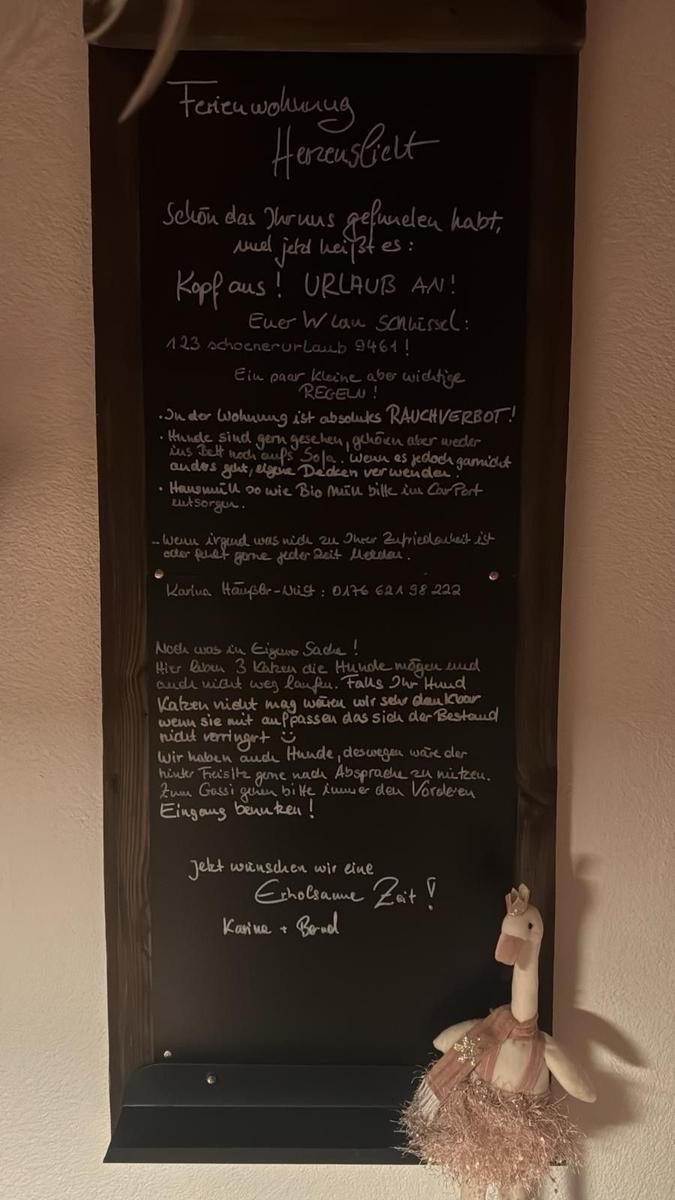 Ferienwohnung
Herzenslicht
Schön das Ihr uns gefunden habt,
und jetzt heißt es:
Kopf aus! URLAUB AN!
Euer W Lan SCHLüssel:
123 schoenerurlaub 9461!
Ein paar kleine aber wichtige
REGELN!
• In der Wohnung ist absolutes RAUCHVERBOT!
• Hunde sind gern gesehen, gehören aber weder
ins Bett noch aufs Sofa. Wenn es jedoch garnicht
anders geht, eigene Decken verwenden.
• Hausmüll so wie Bio Müll bitte im CarPort
entsorgen.
- Wenn irgend was nich zu Ihrer Zufriedenheit ist
oder fehlt gerne jeder Zeit Melden.
Karina Häußler- : 0176 621 98 222
Noch was in Eigener Sache!
Hier leben 3 Katzen die Hunde mögen und
auch nicht weg laufen. Falls Ihr Hund
Katzen nicht mag wären wir sehr dankbar
wenn sie mit aufpassen das sich der Bestand
nicht verringert ☺
Wir haben auch Hunde, deswegen wäre der
hinter Freisitz gerne nach Absprache zu nutzen.
Zum Gassi gehen bitte immer den Vorderen
Eingang benutzen!
Jetzt wünschen wir eine
Erholsame Zeit!
Karina + Bernd